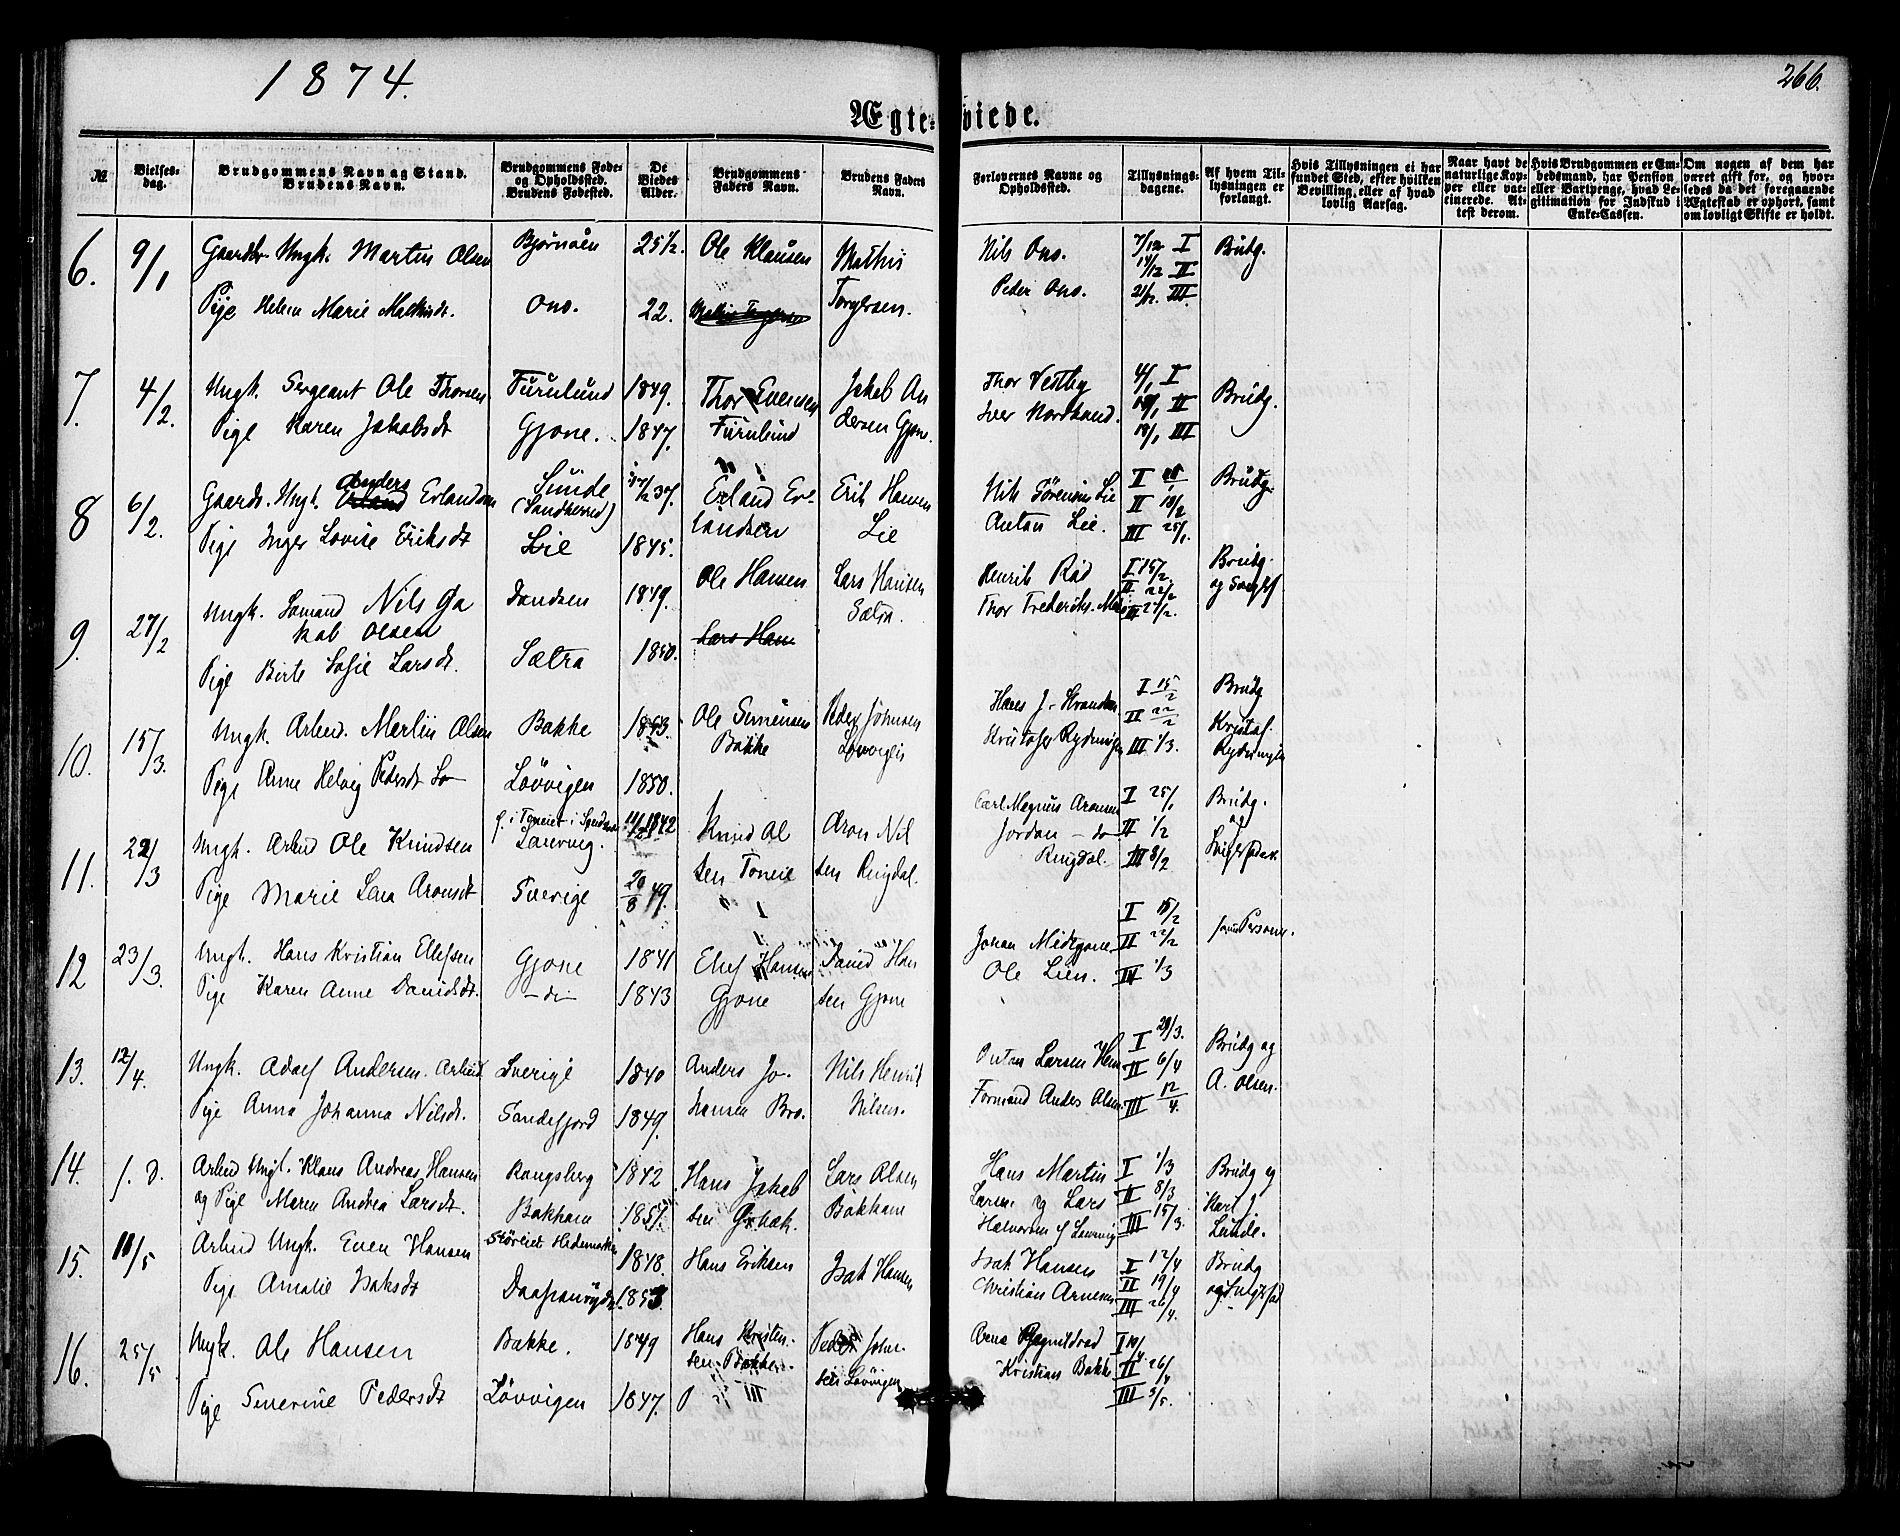 1874.
266.
Ægteviede.
№
Vielsesdag.
Brudgommens Navn og Stand. Brudens Navn.
Brudgommens Føde- og Opholdssted. Brudens Fødested.
De Viedes Alder.
Brudgommens Faders Navn.
Brudens Faders Navn.
Forlovernes Navne og Opholdssted.
Tillysningsdagene.
Af hvem Tillysningen er forlangt.
Hvis Tillysningen ei har fundet Sted, efter hvilken Bevilling, eller af hvad lovlig Aarsag.
Naar havt de naturlige Kopper eller vaccinerede. Attest derom.
Hvis Brudgommen er Embedsmand, har Pension eller Vartpenge, hvad Legitimation for Indskud i Enke-Cassen.
Om nogen af dem har været gift før, og hvorledes da det foregaaende Ægteskab er ophørt, samt om lovligt Skifte er holdt.
6. 9/1 Ungk. Martin Olsen Bjørnøen 25 1/2. Ole Klausen Mathis Nils Ono. 7/12 I Brudg.
14/12 II
Pige Helene Marie Ono. 22. Torgersen. Peder Ono. 21/12 III
7. 4/2. Ungk. Sergeant Ole Thorsen Furulund 1849. Thor Evensen Jakob An Thor Vestby 4/1 I Brudg.
Pige Karen Jakobsdt Gjone. 1847. Furulund dersen Gjone. Iver 18/1 III
8 6/2. Gaardb. Ungk. Anders Erlandsen Sunde (Sandherred) 37. Erland Er- Erik Hansen Nils Sørensen Lie I Brudg.
Pige Inger Lovise Eriksdt Lie 1845. landsen Lie Anton Lie. II III 25/1
9. 27/2 Ungk. Nils Ja Sandsen 1849. Ole Hansen Lars Hansen Henrik Rød I 15/2. Brudg.
kob Olsen Sætra. Thor II 22/2 og
Pige Birte Sofie Larsdt. Sætra 1850. Lars Hans
10. 15/3. Ungk. Arbeid. Olsen Bakke 1843. Ole Simensen Peder Johnsen Hans J. I 15/2 Brudg
Bakke Løvvigen II 22/2 Kristof.
Pige Anne Helvig Pedersdt Løvvigen 1850. III 1/3.
11. 22/3 Ungk. Arbeid Ole Knudsen Laurvig. 1842 Knud Ol Aron Nil Carl Magnus Aronsen I 25/1 Brudg.
sen sen Ringdal. Jordan - do II 1/2 og
Pige Marie Lena Aronsdt Sverige 20/8 49. Ringdal. III 8/2
12 23/3. Ungk. Hans Kristian Ellefsen Gjone 1841 Ellef Hansen David Han Johan Midtgjone I 15/2 Personer.
II 22/2
Pige Karen Anne Davidsdt. - do - 1843 Gjone sen Gjone Ole Lien. III 1/3
13. 12/4. Ungk. Adolf Andersen. Arbeid. Sverige 1840 Anders Jo- Nils Henrik Anton Larsen I 29/3. Brudg og
II 6/4 A. Olsen.
Pige Anna Johanna Nilsdt. Sandefjord 1849. hansen Bro. Nilsen. Formand Anders Olsen III 12/4.
14. s. D. Arbeid Ungk. Klaus Andreas Hansen Kongsberg 1842 Hans Jakob Lars Olsen Hans Martin I 1/3 Brudg og
og Pige Maren Andrea Larsdt. Bakham 1851. sen Bakham Larsen og Lars II 8/3 Karl J.
Halvorsen III 15/3. Lunde.
15. 11/5 Arbeid Ungk. Even Hansen Hedemarken 1848. Hans Eriksen Isak Hansen Isak Hansen I 12/4 Brudg
Pige Amalie Isaksdt 1853 Christian Arnesen II 19/4
III 26/4.
16. 25/5 Ungk. Ole Hansen Bakke. 1849 Hans Kristen- Peder John- I 19/4
sen Bakke. sen Løvvigen Kristian Bakke II 26/4
Pige Severine Pedersdt Løvvigen 1847. III 3/5.